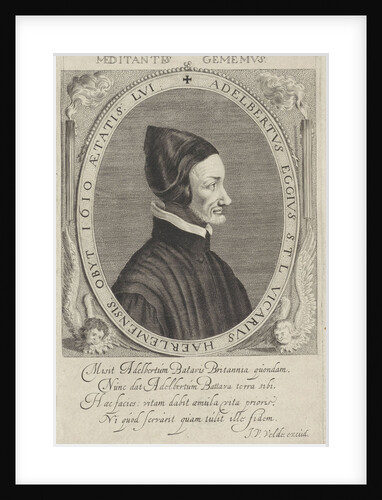 MEDITANTES GEMEMVS.
✠ ADELBERTVS EGGIVS S.T.L. VICARIVS HAERLEMENSIS OBYT 1610 ÆTATIS LVI.
Misit Adelbertum Batavis Britannia quondam,
Nunc dat Adelbertum Battava terra sibi.
Hæc facies: vitam dabit æmula vita prioris;
Ni quod servarit quam tulit ille fidem.
J.V. Velde, excud.